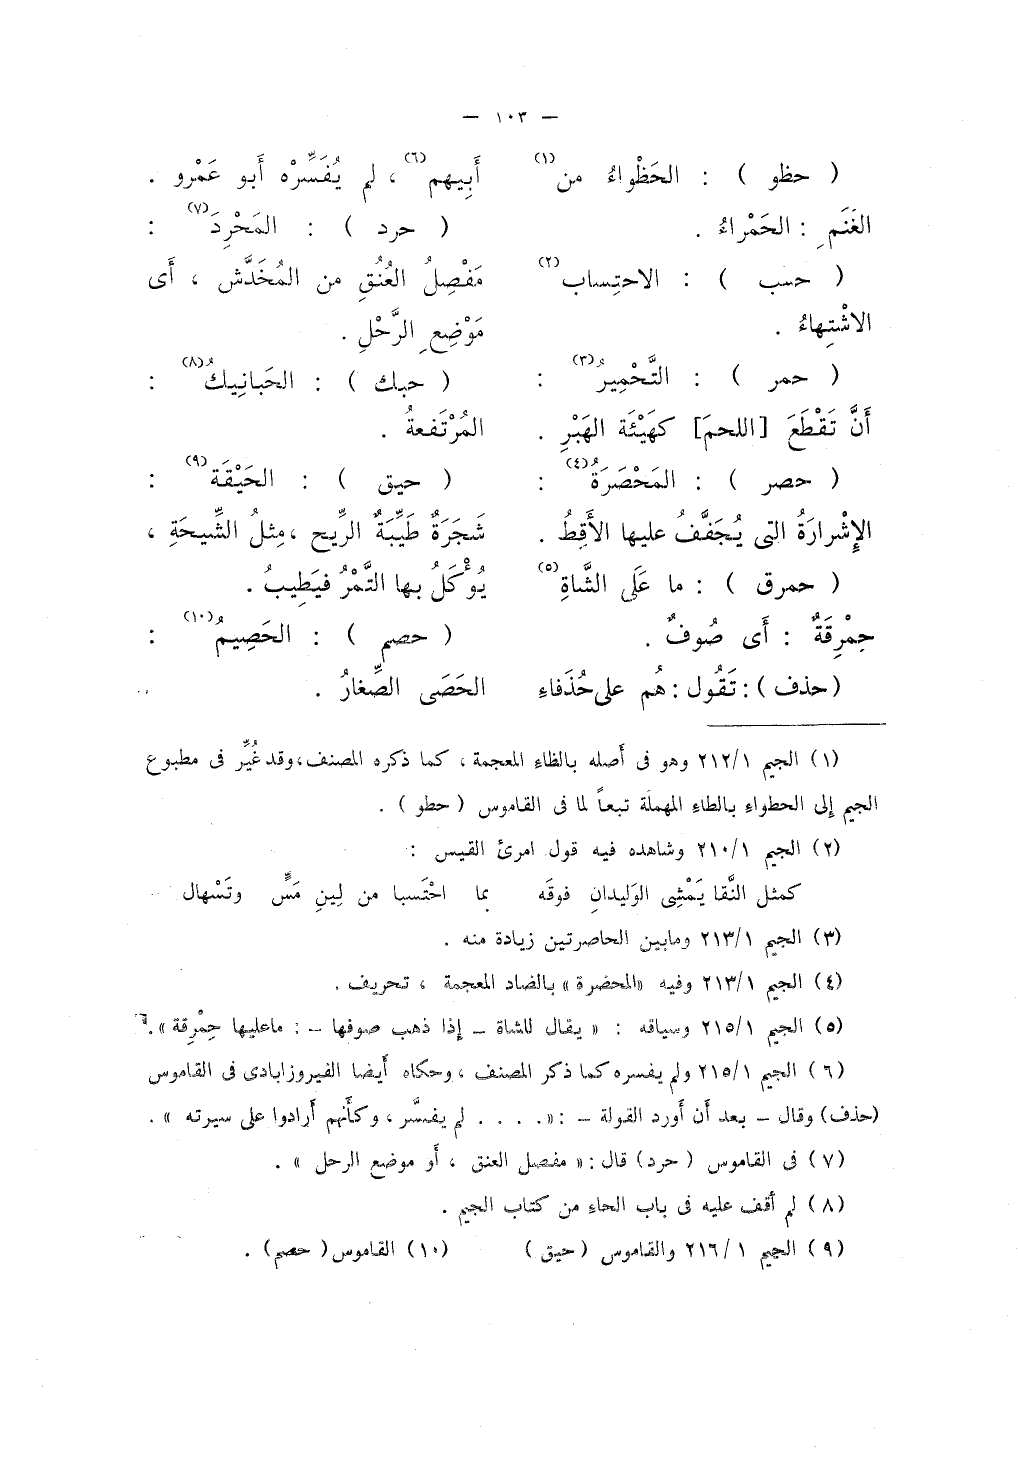 — ١٠٣ —
( حظو ) : الحَظْواءُ من(١)
الغَنَمِ : الحَمْراءُ .
( حسب ) : الاحتِساب(٢)
الاشْتِهاءُ .
( حمر ) : التَّحْمِيرُ(٣) :
أَنَّ تَقْطَعَ [اللحمَ] كهَيْئَة الهَبْرِ .
( حصر ) : المَحْصَرَةُ(٤) :
الإِشْرارَةُ التى يُجَفَّفُ عليها الأَقِطُ .
( حمرق ) : ما عَلَى الشَّاةِ(٥)
حِمْرِقَةٌ : أَى صُوفٌ .
( حذف ) : تَقُول : هُم على حُذَفاءِ
أَبِيهم(٦) ، لم يُفَسِّرْه أَبو عَمْرو .
( حرد ) : المَحْرِدَ(٧) :
مَفْصِلُ العُنُقِ من المُخَدَّش ، أَى
مَوْضِعِ الرَّحْلِ .
( حبك ) : الحَبانِيكُ(٨) :
المُرْتَفعةُ .
( حيق ) : الحَيْقَة(٩) :
شَجَرَةٌ طَيِّبَةٌ الرِّيح ، مِثلُ الشِّيحَةِ ،
يُؤْكَلُ بها التَّمْرُ فيَطِيبُ .
( حصم ) : الحَصِيمُ(١٠) :
الحَصَى الصِّغارُ .
(١) الجيم ٢١٢/١ وهو فى أَصله بالظاء المعجمة ، كما ذكره المصنف ، وقد غُيِّر فى مطبوع
الجيم إلى الحطواء بالطاء المهملة تبعاً لما فى القاموس ( حطو ) .
(٢) الجيم ٢١٠/١ وشاهده فيه قول امرئ القيس :
كمثل النَّقا يَمْشِى الوَلِيدانِ فوقَه بما احْتَسبا من لِينِ مَسٍّ وتَسْهال
(٣) الجيم ٢١٣/١ ومابين الحاصرتين زيادة منه .
(٤) الجيم ٢١٣/١ وفيه «المحضرة» بالضاد المعجمة ، تحريف .
(٥) الجيم ٢١٥/١ وسياقه : « يقال للشاة – إذا ذهب صوفها – : ماعليها حِمْرِقة ».
(٦) الجيم ٢١٥/١ ولم يفسره كما ذكر المصنف ، وحكاه أَيضا الفيروزابادى فى القاموس
(حذف) وقال – بعد أَن أَورد القولة – : «. . . . لم يفسَّر ، وكأَنهم أَرادوا على سيرته » .
(٧) فى القاموس ( حرد) قال : « مفصل العنق ، أَو موضع الرحل » .
(٨) لم أقف عليه فى باب الحاء من كتاب الجيم .
(٩) الجيم ٢١٦/١ والقاموس (حيق) (١٠) القاموس ( حصم) .